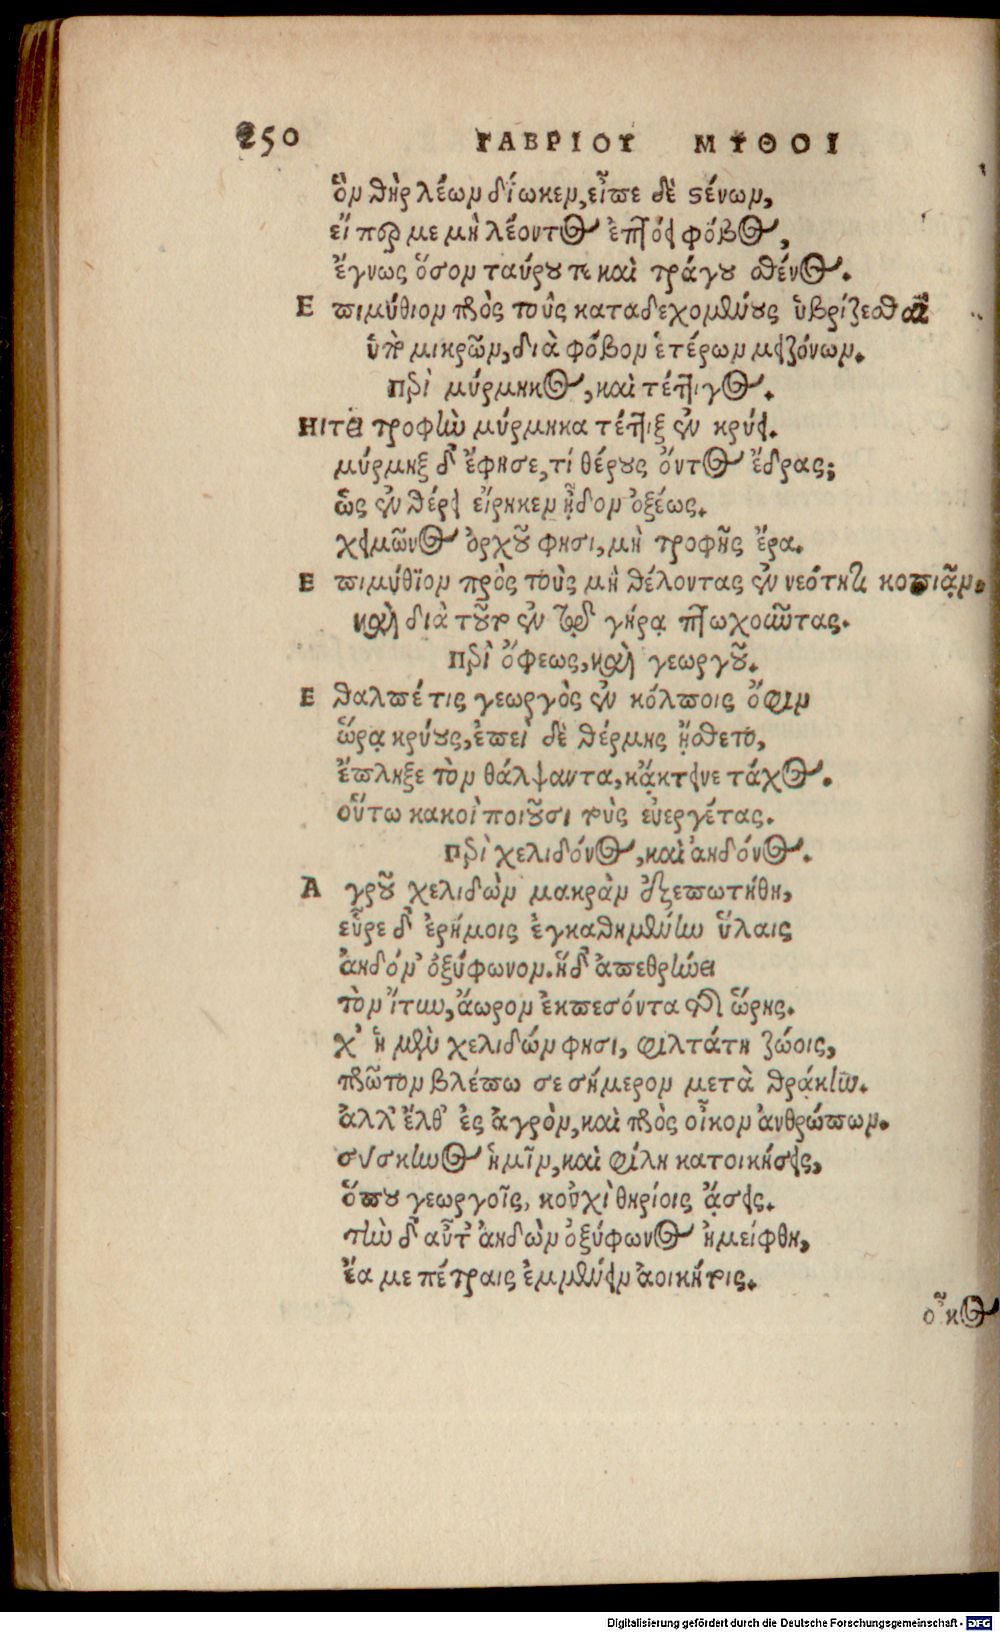 250 ΓΑΒΡΙΟΥ ΜΥΘΟΙ
ὃν θὴρ λέων δίωκεν, εἶπε δὲ στένων,
εἴπερ με μὴ λέοντος ἐπτόει φόβος,
ἔγνως ὅσον ταύρου τε καὶ τράγου σθένος.
Ἐπιμύθιον πρὸς τοὺς καταδεχομένους ὑβρίζεσθαι
ὑπὸ μικρῶν, διὰ φόβον ἑτέρων μειζόνων.
Περὶ μύρμηκος, καὶ τέττιγος.
ΗΙτει τροφὴν μύρμηκα τέττιξ ἐν κρύει.
μύρμηξ δ' ἔφησε, τί θέρους ὄντος ἔδρας;
ὡς ἐν θέρει εἴρηκεν ᾖδον ὀξέως.
χειμῶνος ὀρχοῦ φησι, μὴ τροφῆς ἔρα.
Ἐπιμύθιον πρὸς τοὺς μὴ θέλοντας ἐν νεότητι κοπιᾷν.
καὶ διὰ τοῦτο ἐν τῷ γήρᾳ πτωχοῦντας.
Περὶ ὄφεως, καὶ γεωργοῦ.
Ἔθαλπέ τις γεωργὸς ἐν κόλποις ὄφιν
ὥρᾳ κρύους, ἐπεὶ δὲ θέρμης ᾔσθετο,
ἔπληξε τὸν θάλψαντα, κᾄκτεινε τάχος.
οὕτω κακοὶ ποιοῦσι τοὺς εὐεργέτας.
Περὶ χελιδόνος, καὶ ἀηδόνος.
Ἀγροῦ χελιδὼν μακρὰν ἐξεπωτήθη,
εὗρε δ' ἐρήμοις ἐγκαθημένην ὕλαις
ἀηδόν' ὀξύφωνον. ἡ δ' ἀπεθρήνει
τὸν ἴτυν, ἄωρον ἐκπεσόντα τῆς ὥρης.
χ' ἡ μὲν χελιδών φησι, φιλτάτη ζώοις,
πρῶτον βλέπω σε σήμερον μετὰ θρᾴκην.
ἀλλ' ἔλθ' ἐς ἀγρὸν, καὶ πρὸς οἶκον ἀνθρώπων.
σύσκηνος ἡμῖν, καὶ φίλη κατοικήσεις,
ὅπου γεωργοῖς, κοὐχὶ θηρίοις ᾄσεις.
τὴν δ' αὖτ' ἀηδὼν ὀξύφωνος ἠμείφθη,
ἔα με πέτραις ἐμμένειν ἀοικήτοις.
οἶκος
Digitalisierung gefördert durch die Deutsche Forschungsgemeinschaft - DFG